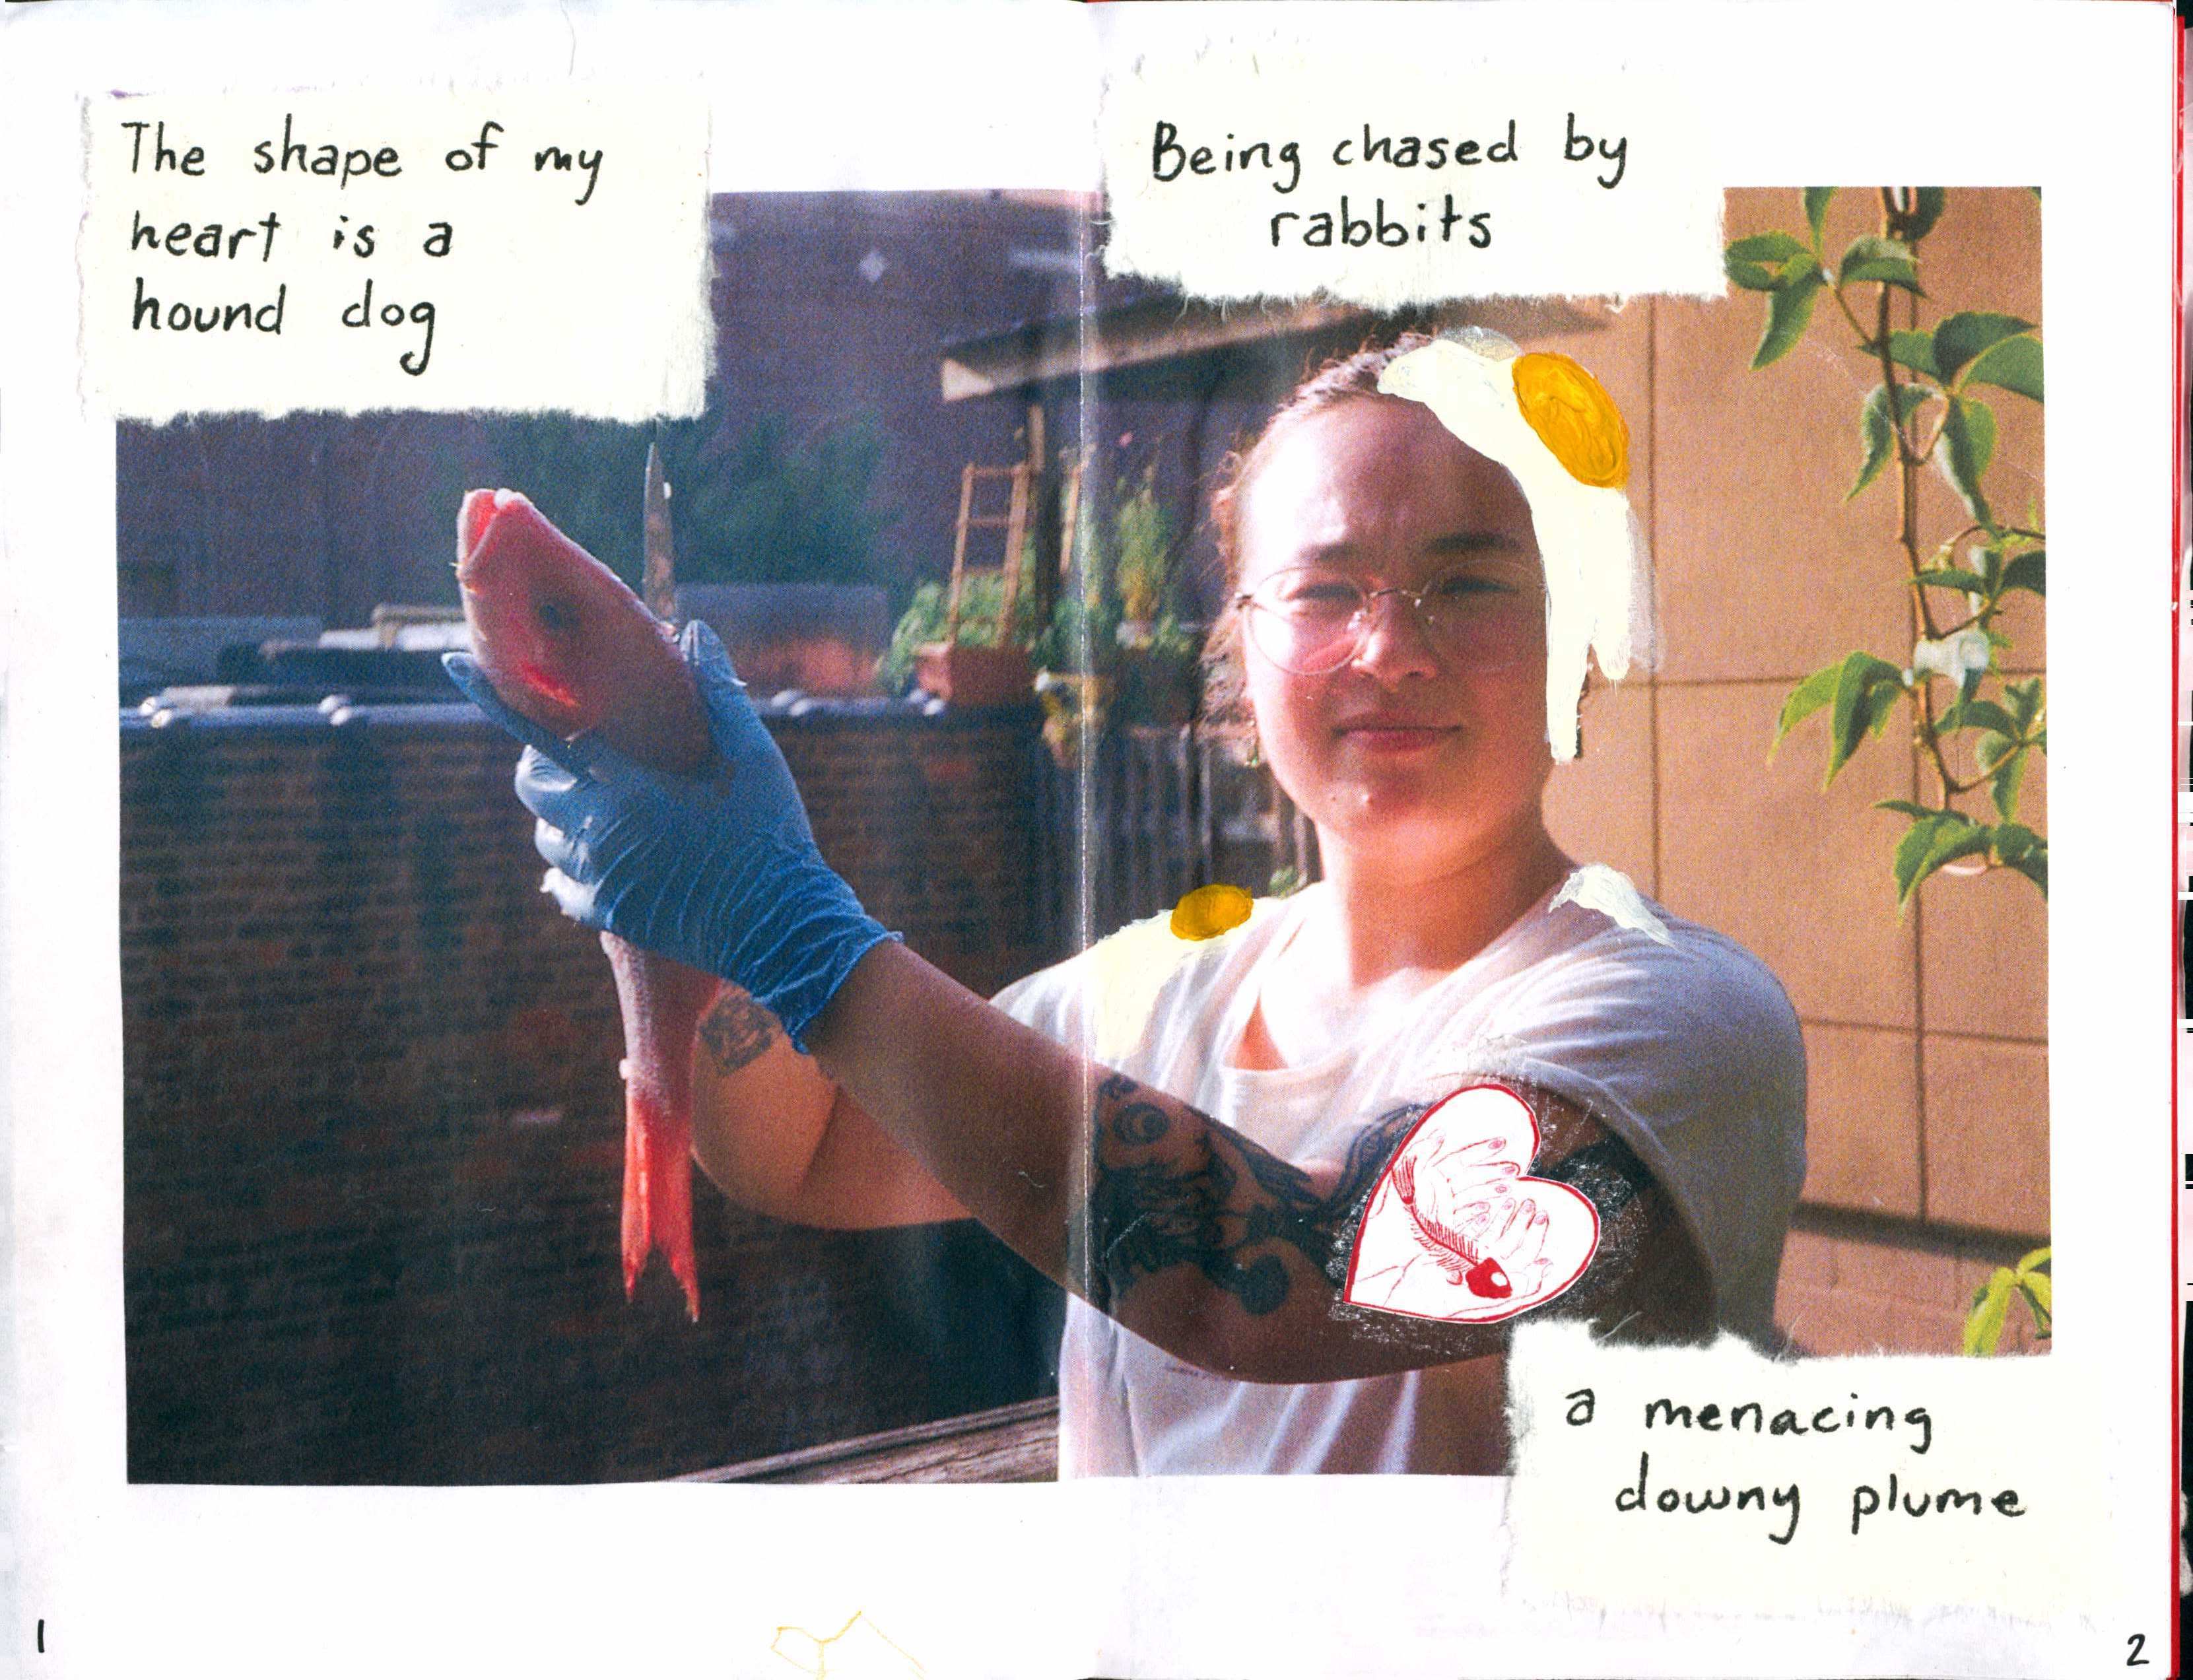 The shape of my
heart is a
hound dog
Being chased by
rabbits
a menacing
downy plume
1
2